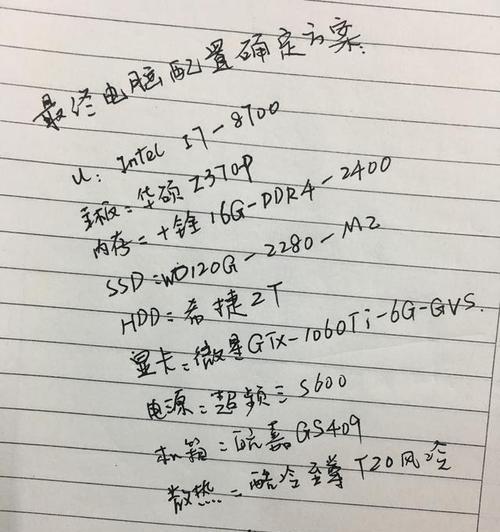 最终电脑配置确定方案:
U: Intel I7-8700
主板=华硕Z370P
内存=十铨16G-DDR4-2400
SSD=WD120G-2280-M2
HDD=希捷2T
显卡=微星GTX-1060Ti-6G-GVS.
电源=超频三S600
机箱=硫嘉GS409
散热=酷冷至尊T20风冷